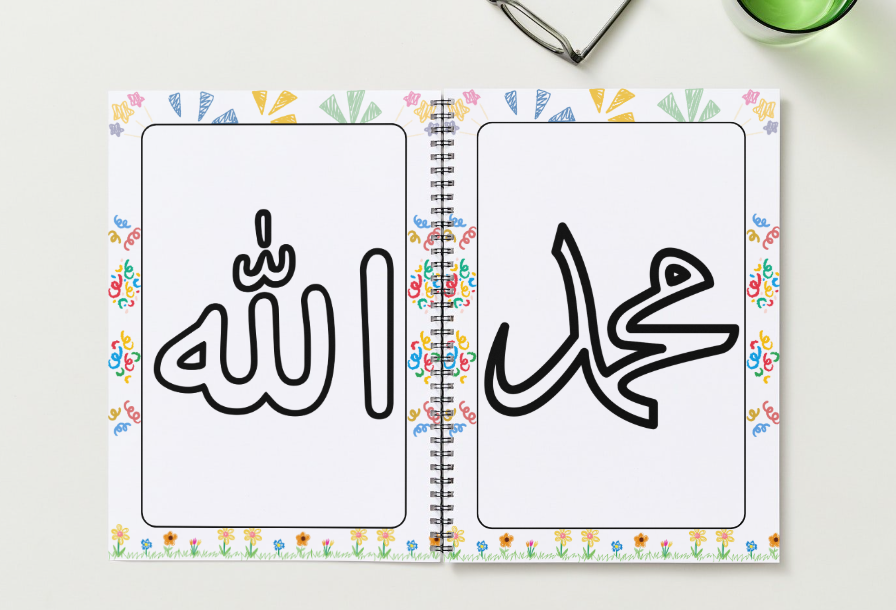 اللّٰه
محمد